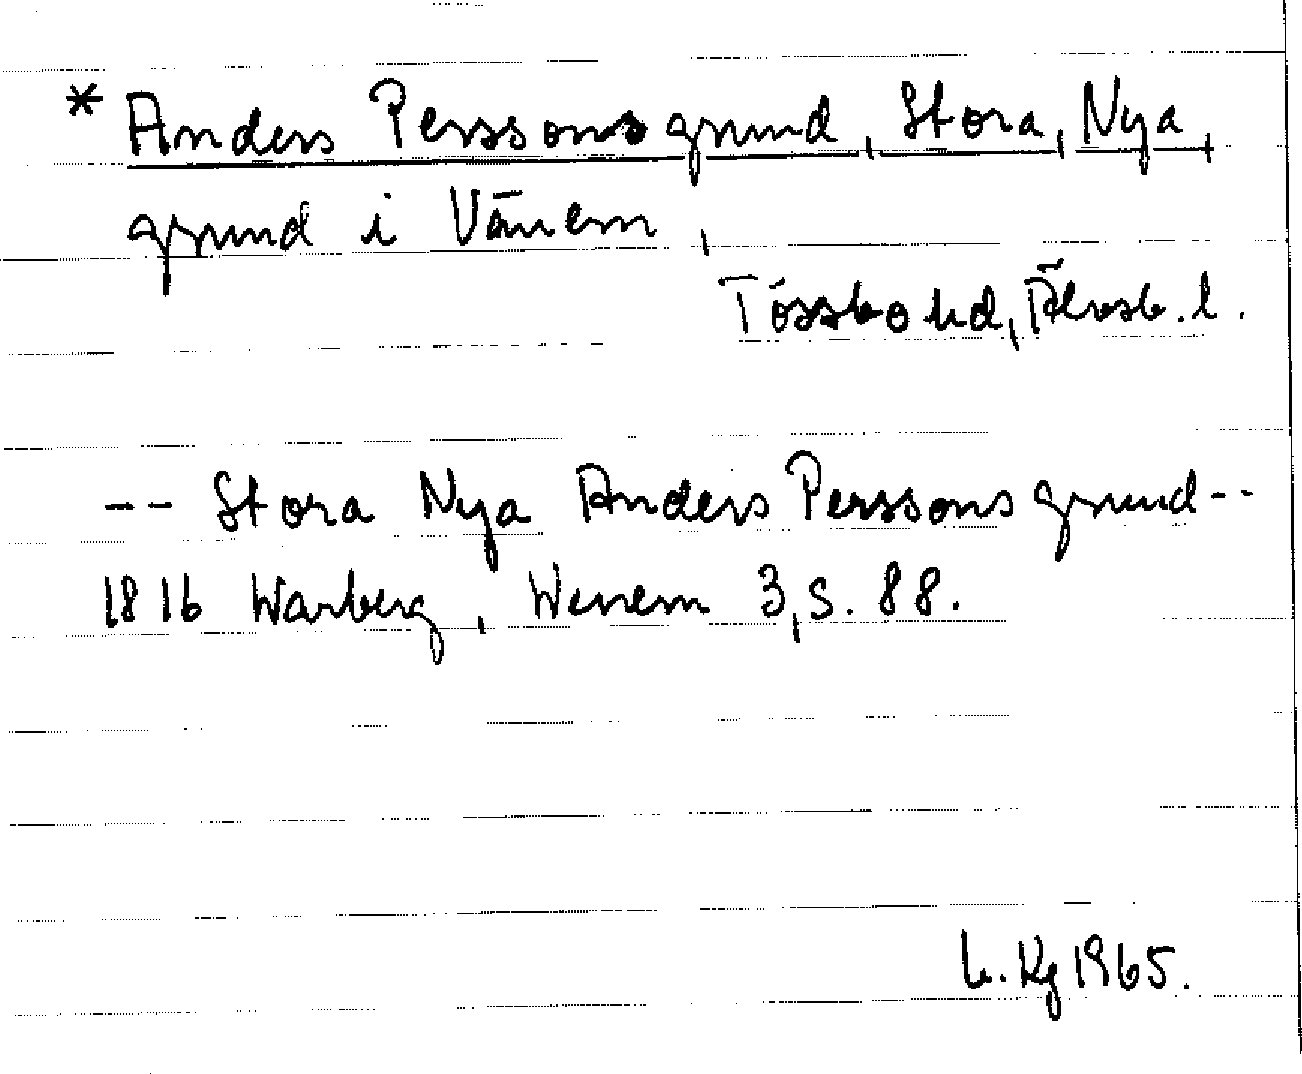 * Anders Perssons grund, Stora, Nya,
grund i Vänern,
Tössbo hd, Älvsb. l.
-- Stora Nya Anders Perssons grund --
1816 Warberg, Wenern 3, s. 88.
L. Kg 1965.